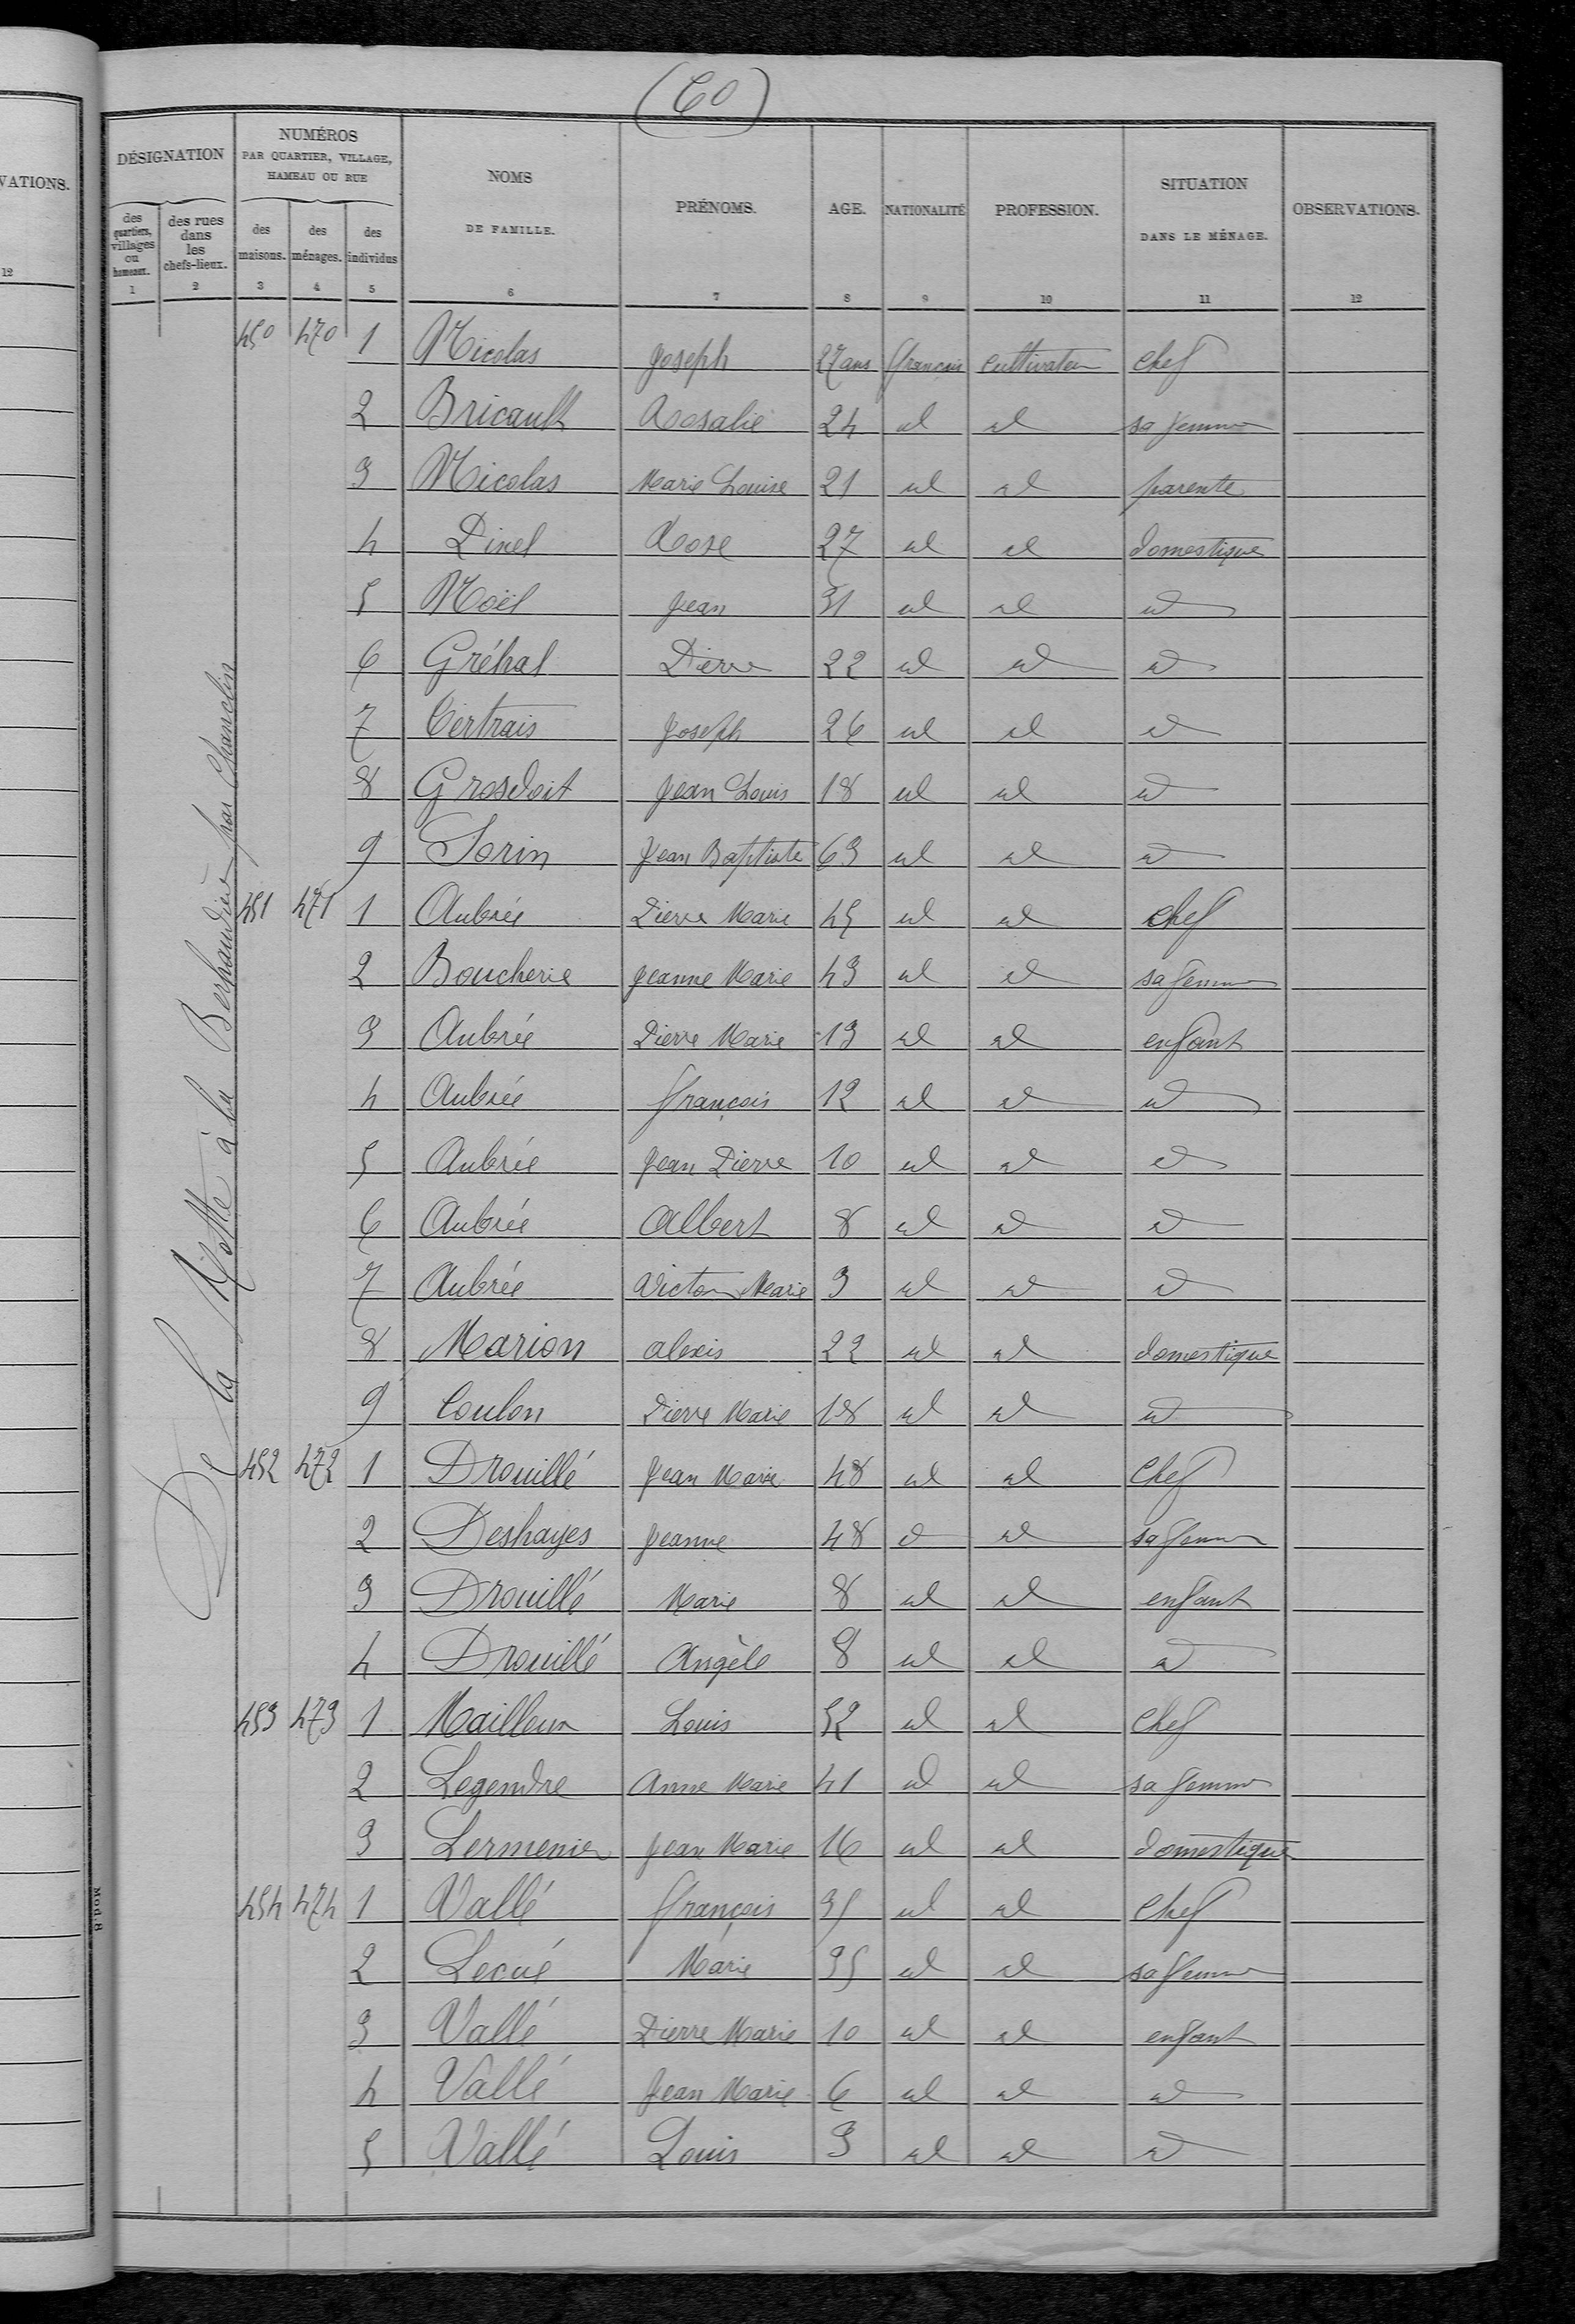 (60)
VATIONS.
12
DÉSIGNATION
NUMÉROS
PAR QUARTIER, VILLAGE,
HAMEAU OU RUE
des quartiers, villages ou hameaux.
des rues dans les chefs-lieux.
des maisons.
des ménages.
des individus
NOMS
DE FAMILLE.
PRÉNOMS.
AGE.
NATIONALITÉ
PROFESSION.
SITUATION
DANS LE MÉNAGE.
OBSERVATIONS.
1 2 3 4 5 6 7 8 9 10 11 12
De la Motte à la par
450 470 1 Nicolas Joseph 27 ans français cultivateur chef
2 Bricault Rosalie 24 id id sa femme
3 Nicolas Marie Louise 21 id id parente
4 Pinel Rose 27 id id domestique
5 Noël Jean 31 id id id
6 Gréhal Pierre 22 id id id
7 Certrais Joseph 26 id id id
8 Grosdoit Jean Louis 18 id id id
9 Sorin Jean Baptiste 63 id id id
451 471 1 Aubrée Pierre Marie 45 id id chef
2 Boucherie Jeanne Marie 43 id id sa femme
3 Aubrée Pierre Marie 13 id id enfant
4 Aubrée François 12 id id id
5 Aubrée Jean Pierre 10 id id id
6 Aubrée Albert 8 id id id
7 Aubrée Victor Marie 3 id id id
8 Marion Alexis 22 id id domestique
9 Coulon Pierre Marie 18 id id id
452 472 1 Drouillé Jean Marie 48 id id chef
2 Deshayes Jeanne 48 id id sa femme
3 Drouillé Marie 8 id id enfant
4 Drouillé Angèle 8 id id id
453 473 1 Mailleux Louis 52 id id chef
2 Legendre Anne Marie 41 id id sa femme
3 Lermenier Jean Marie 16 id id domestique
454 474 1 Vallé François 35 id id chef
2 Lecué Marie 35 id id sa femme
3 Vallé Pierre Marie 10 id id enfant
4 Vallé Jean Marie 6 id id id
5 Vallé Louis 3 id id id
Mod. 8